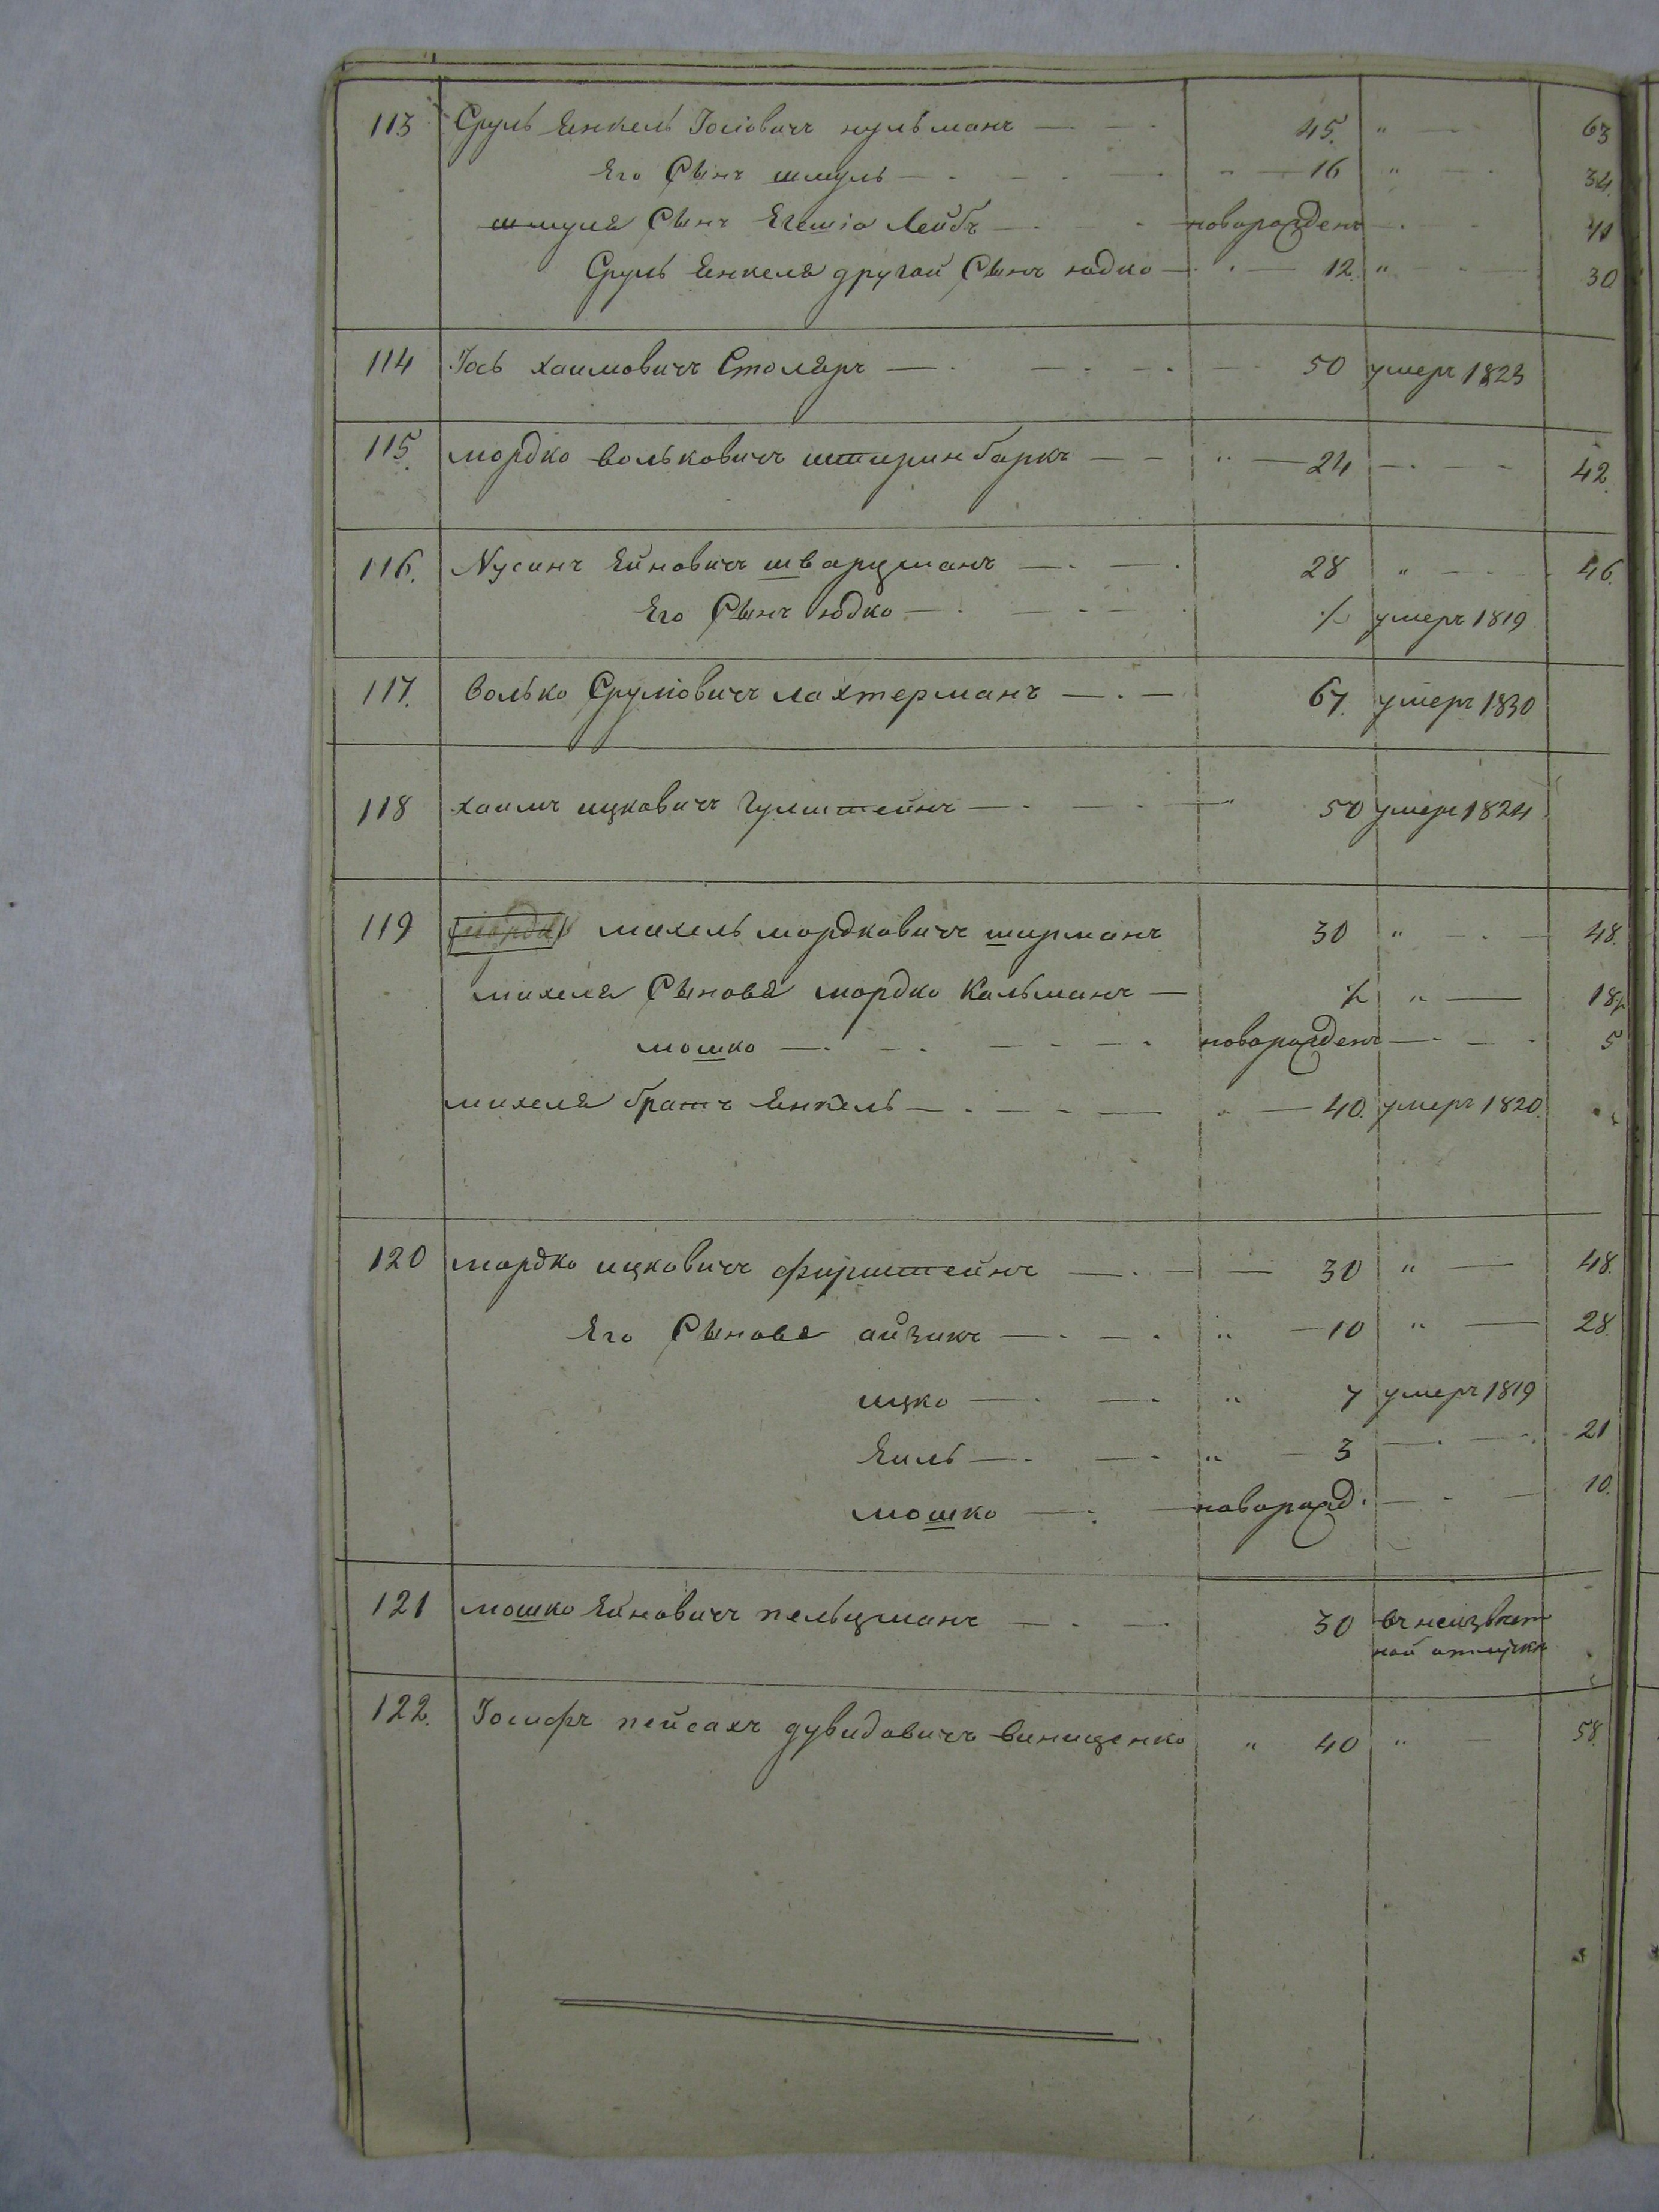 113 Сруль Янкель Іосіовичъ нульманъ — 45. " — 63
Его Сынъ шмуль — " — 16 " — 34.
шмуля Сынъ Егошіо Лейбъ — новорожденъ — 11
Сруль Янкеля другой Сынъ юдко — 12. " — 30
114 Іось хаимовичъ Столяръ — 50 умеръ 1823
115. мордко вольковичъ штиринбаркъ — " — 24 — 42.
116. Нусинъ Яйновичъ шварцманъ — 28 " — 46.
Его Сынъ юдко — ½ умеръ 1819
117. волько Сруліовичъ лахтерманъ — 67. умеръ 1830
118 хаимъ ицковичъ Гулштейнъ — 50 умеръ 1824
119 михель мордковичъ ширманъ 30 " — 48.
михеля Сыновя мордко Кальманъ — ½ " — 18½
мошко — новорожденъ — 5
михеля братъ Янкель — 40. умеръ 1820.
120 мордко ицковичъ фирштейнъ — 30 " — 48.
Его Сыновя айзикъ — " — 10 " — 28.
ицко — " 7 умеръ 1819
Яиль — " — 3 — 21
мошко — новорожд. — 10.
121 мошко Яйновичъ пельцманъ — 30 въ неизвѣст
ной отлучкѣ
122. Іосифъ пейсахъ дувидовичъ винищенко " 40 " — 58.